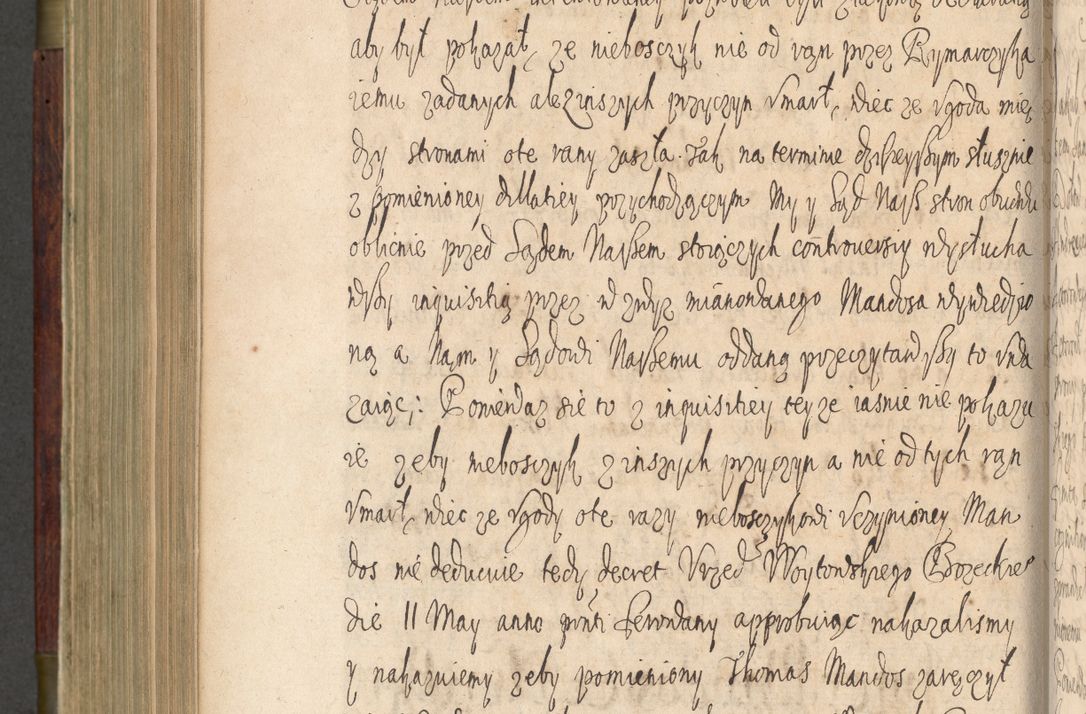 aby był pokazał, ze nieboszczyk nie od ran przez Rymarczyka
iemu zadanych ale z inszych przyczyn vmarł, wiec ze vgoda mię
dzy stronami o te rany zaszła. Jak na terminie dzisieyszym słusznie
z pomienioney dillatiey przychodzączym My y Sąd Nasz stron obudwu
oblicnie przed Sądem Naszem stoiączych controversiy wysłucha
wszy inquisitią przez w zwyz mianowanego Mandosa wywiedzio
ną a Nąm y Sądowi Naszemu oddaną przeczytawszy to vwa
zaiąc,: Poniewaz sie to z inquisitiey tey ze iasnie nie pokazu
ie zeby nieboszczyk z inszych przyczyn a nie od tych rąn
Vmarł, wiec ze vgody o te razy nieboszczykowi vczynioney Man
dos nie deducuie tedy decret Vrzed Woytowskiego
die 11 May anno prnti ferowany approbuiąc nakazalismy
y nakazuiemy zeby pomieniony Thomas Mandos zaręczył